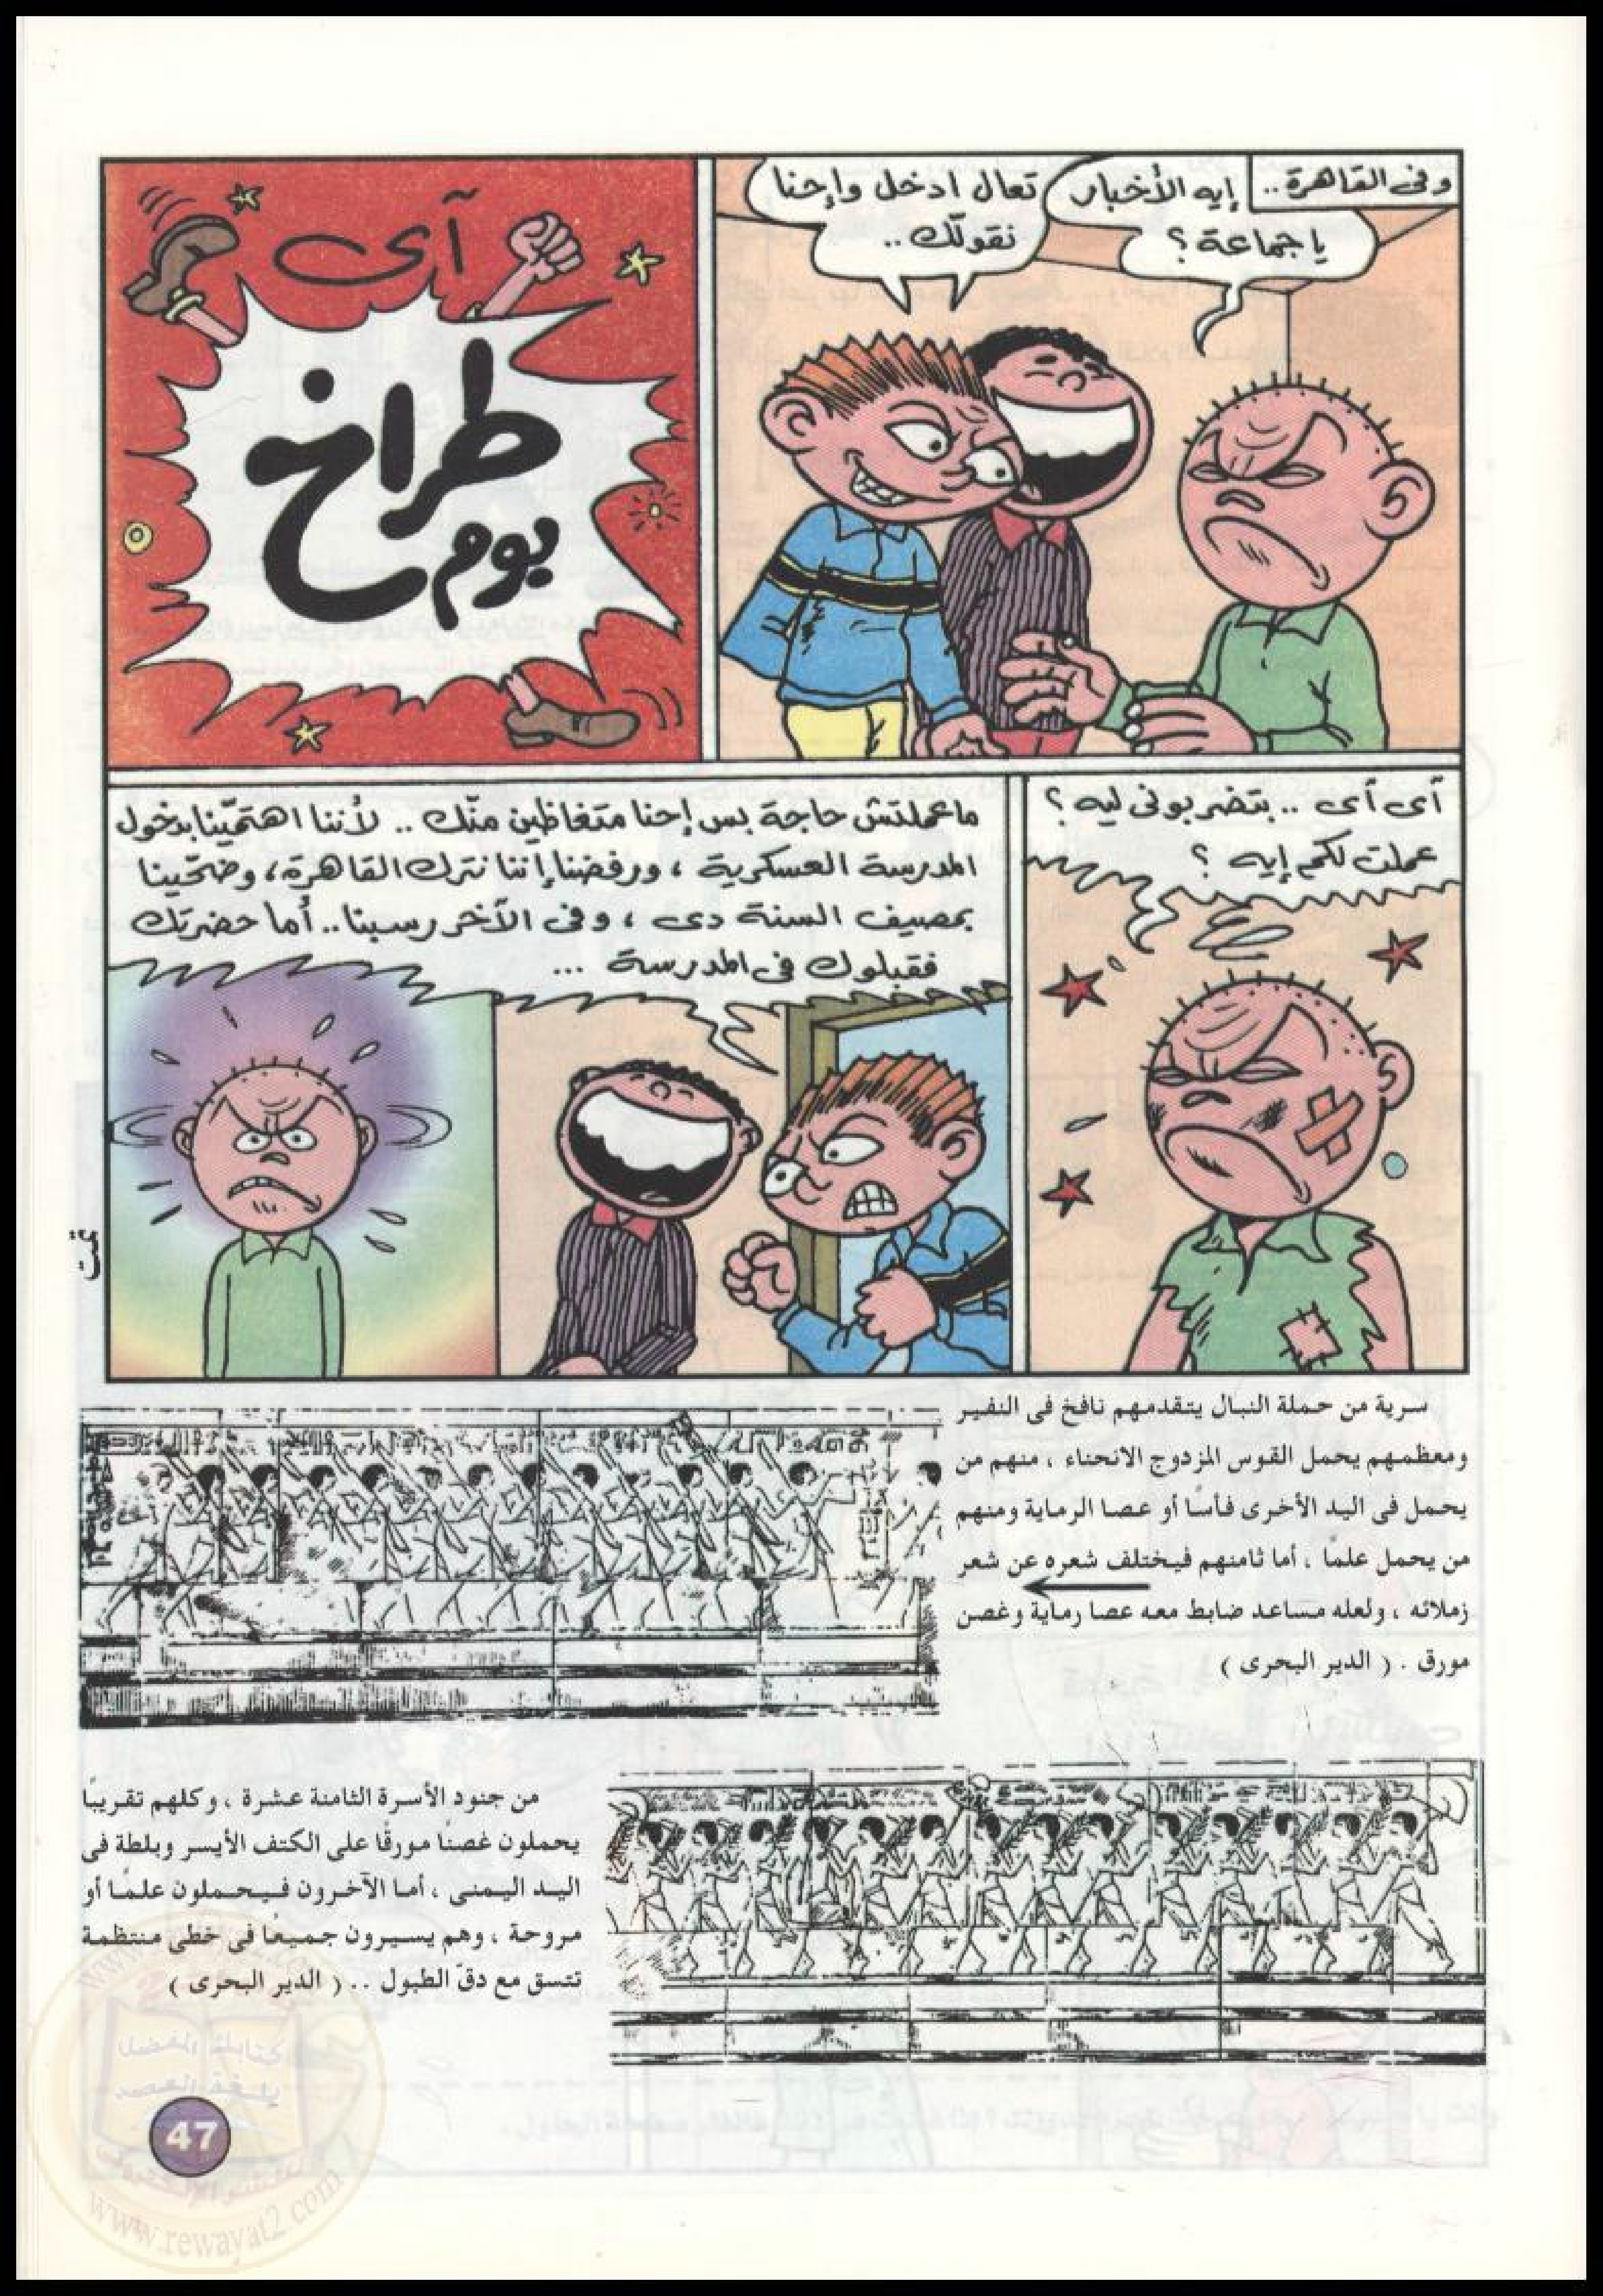 وفى القاهرة..
إيه الأخبار
يا جماعة؟
تعال ادخل وإحنا
نقولّك..
آى
طراخ
بوم
آى آى .. بتضربونى ليه؟
عملت لكم إيه؟
ماعملتش حاجة بس إحنا متغاظين منّك .. لأننا اهتمّينا بدخول
المدرسة العسكرية ، ورفضنا إننا نترك القاهرة، وضحّينا
بمصيف السنة دى ، وفى الآخر رسبنا.. أما حضرتك
فقبلوك فى المدرسة ...
تمت
سرية من حملة النبال يتقدمهم نافخ فى النفير
ومعظمهم يحمل القوس المزدوج الانحناء ، منهم من
يحمل فى اليد الأخرى فأسًا أو عصا الرماية ومنهم
من يحمل علمًا ، أما ثامنهم فيختلف شعره عن شعر
زملائه ، ولعله مساعد ضابط معه عصا رماية وغصن
مورق . ( الدير البحرى )
من جنود الأسرة الثامنة عشرة ، وكلهم تقريبًا
يحملون غصنًا مورقًا على الكتف الأيسر وبلطة فى
اليد اليمنى ، أما الآخرون فيحملون علمًا أو
مروحة ، وهم يسيرون جميعًا فى خطى منتظمة
تتسق مع دقّ الطبول .. ( الدير البحرى )
47
www.rewayat2.com